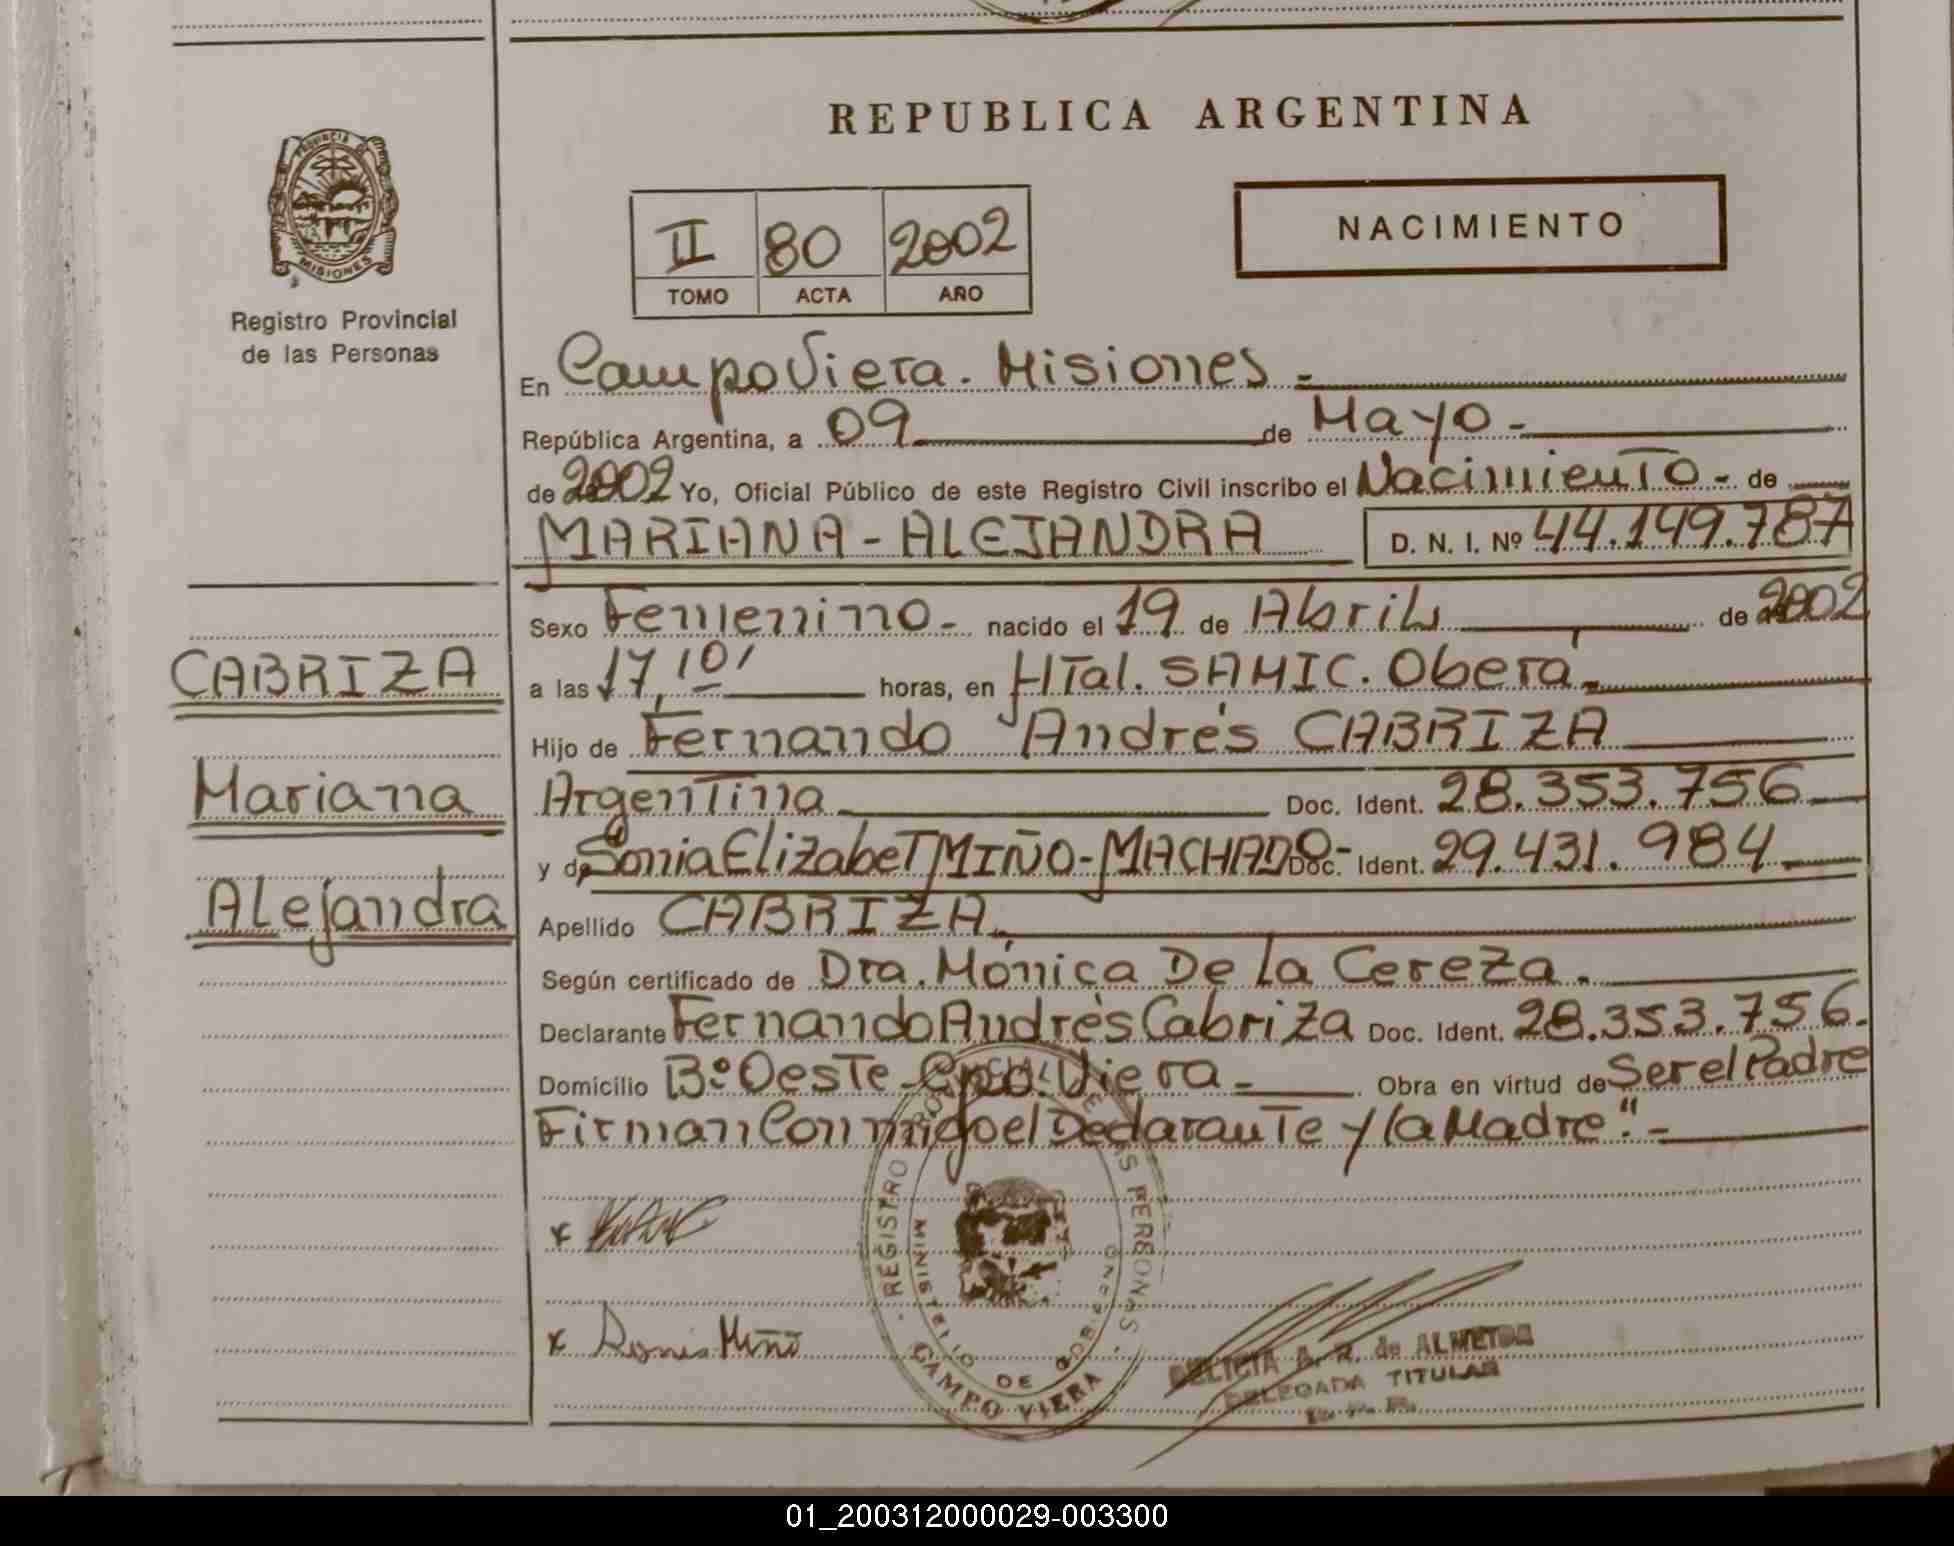 REPUBLICA ARGENTINA
PROVINCIA DE
MISIONES
Registro Provincial
de las Personas
NACIMIENTO
II 80 2002
TOMO ACTA AÑO
En Campo Viera. Misiones -
República Argentina, a 09 de Mayo -
de 2002 Yo, Oficial Público de este Registro Civil inscribo el Nacimiento - de
MARIANA - ALEJANDRA D. N. I. Nº 44.149.787
Sexo Femenino - nacido el 19 de Abril de 2002
a las 17,10' horas, en HTal. SAMIC. Oberá -
Hijo de Fernando Andrés CABRIZA
Argentina Doc. Ident. 28.353.756
y de Sonia Elizabet MIÑO-MACHADO- Doc. Ident. 29.431.984
Apellido CABRIZA.
Según certificado de Dra. Mónica De La Cereza.
Declarante Fernando Andrés Cabriza Doc. Ident. 28.353.756.
Domicilio Bº Oeste - Cpo. Viera - Obra en virtud de Ser el Padre
Firman Conmigo el Declarante y la Madre". -
CABRIZA
Mariana
Alejandra
x
x Sonia Miño
REGISTRO PERSONAS
MINISTERIO DE GOBIERNO
CAMPO VIERA
DELICIA A. R. de ALMEIDA
DELEGADA TITULAR
01_200312000029-003300